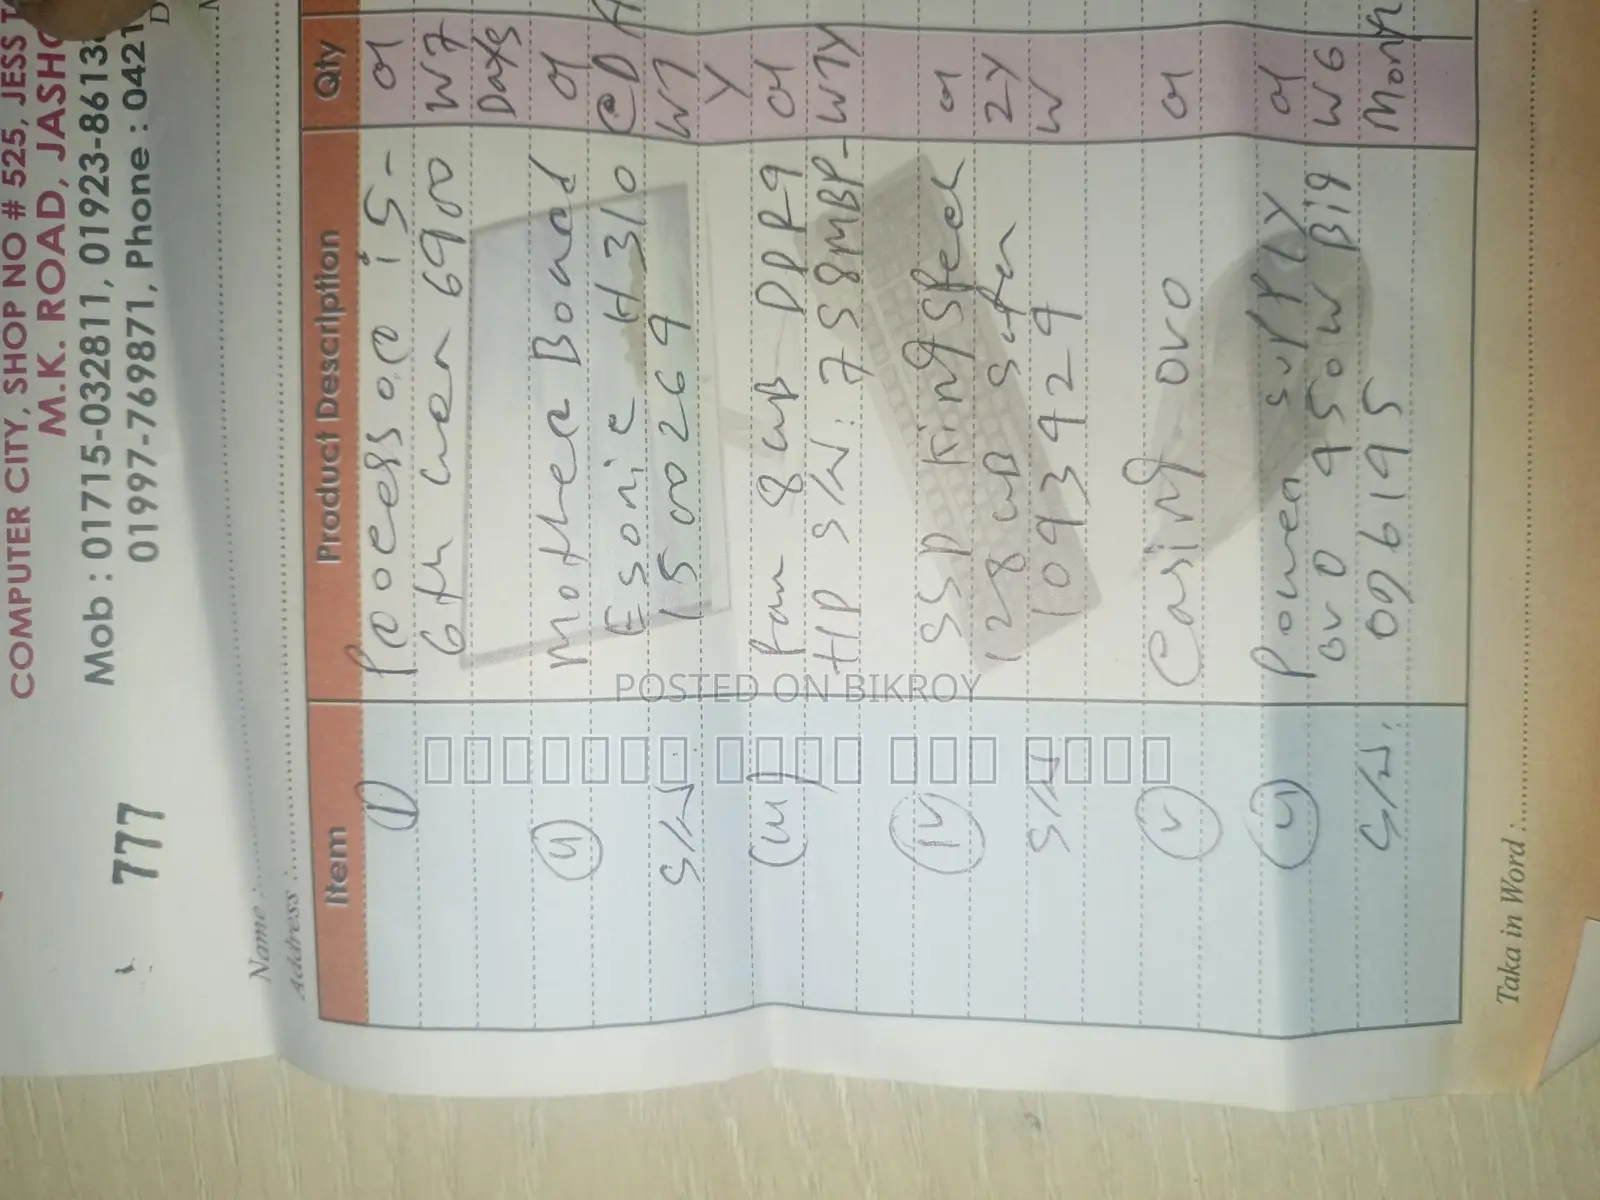 COMPUTER CITY, SHOP NO # 525, JESS
M.K. ROAD, JASH
Mob : 01715-032811, 01923-8613
01997-769871, Phone : 0421
777
Name :
Address :
Item Product Description Qty
Processor i5- 01
6th Gen 6400 W7
Days
Mother Board 01
Esonic H310
S/N 15002649 W1
Y
Ram 8GB DDR4 01
HP S/N: 7S8MBP- W1Y
IV SSD KingSpec 01
128GB Sata 2Y
S/N 1093929 W
V Casing OVO 01
Power Supply 01
OVO 450W Big W6
S/N. 0096195 Month
Taka in Word :
POSTED ON BIKROY